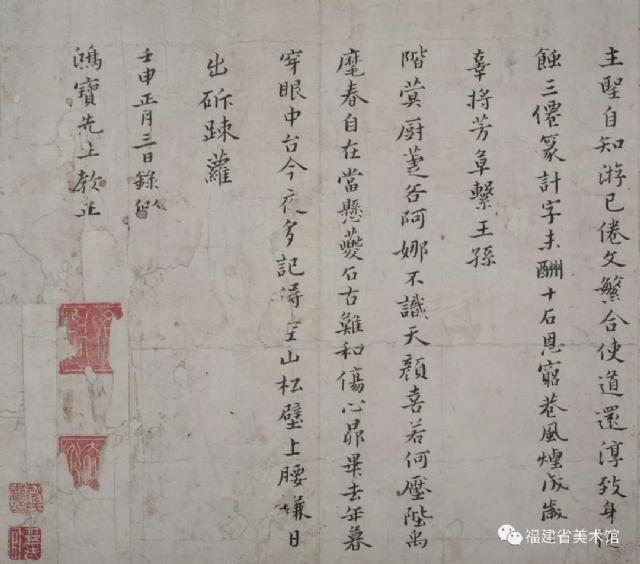 主聖自知游已倦文繁合使道還淳致身
蝕三僊篆計字未酬十石恩窮巷風煙成歲
辜將芳草繫王孫
階蓂厨萐各阿娜不識天顏喜若何壓陛禹
麾春自在當懸夔石古難和傷心昴畢去年暮
穿眼中台今夜多記得空山松壁上腰鎌日
出斫疎蘿
壬申正月三日錄似
鴻寶先生教正
福建省美术馆